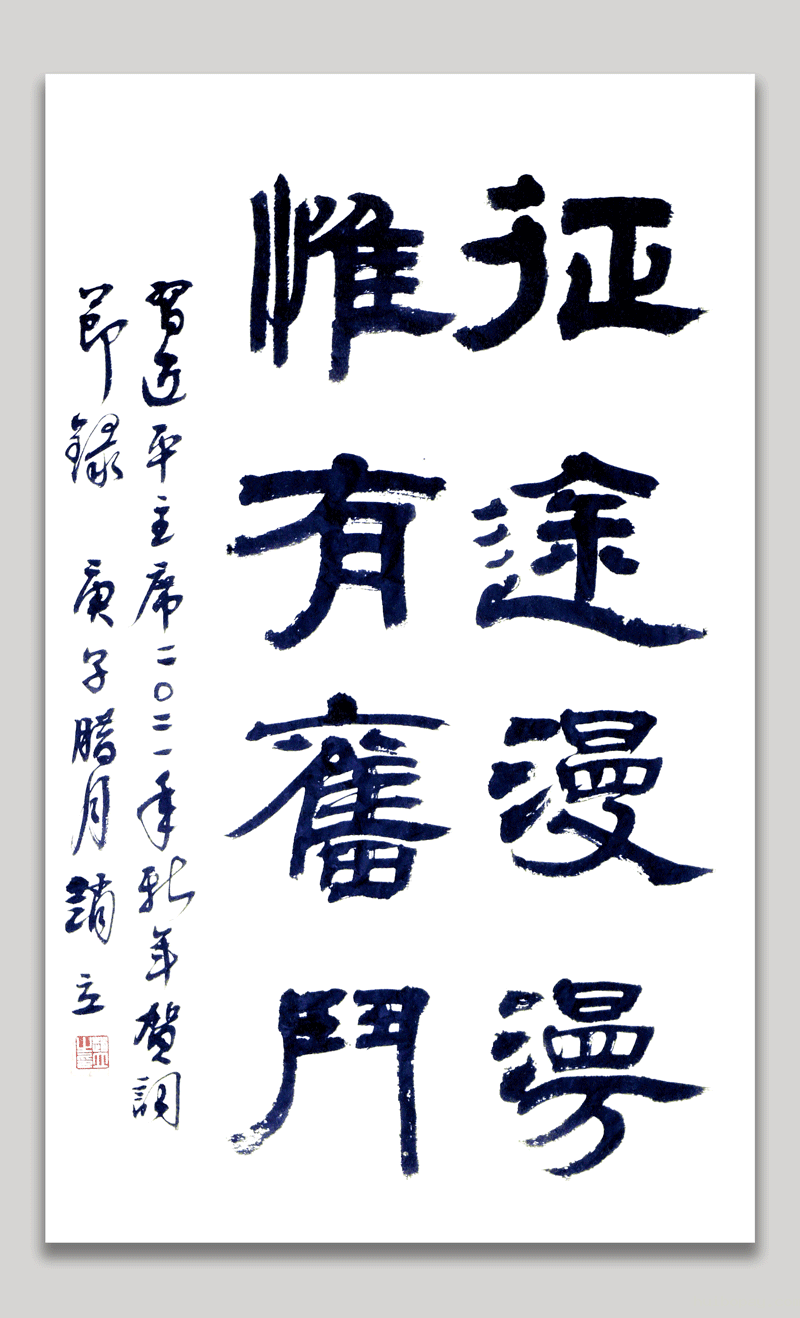 征途漫漫
惟有奮鬥
習近平主席二〇二一年新年贺詞
節録 庚子腊月趙立